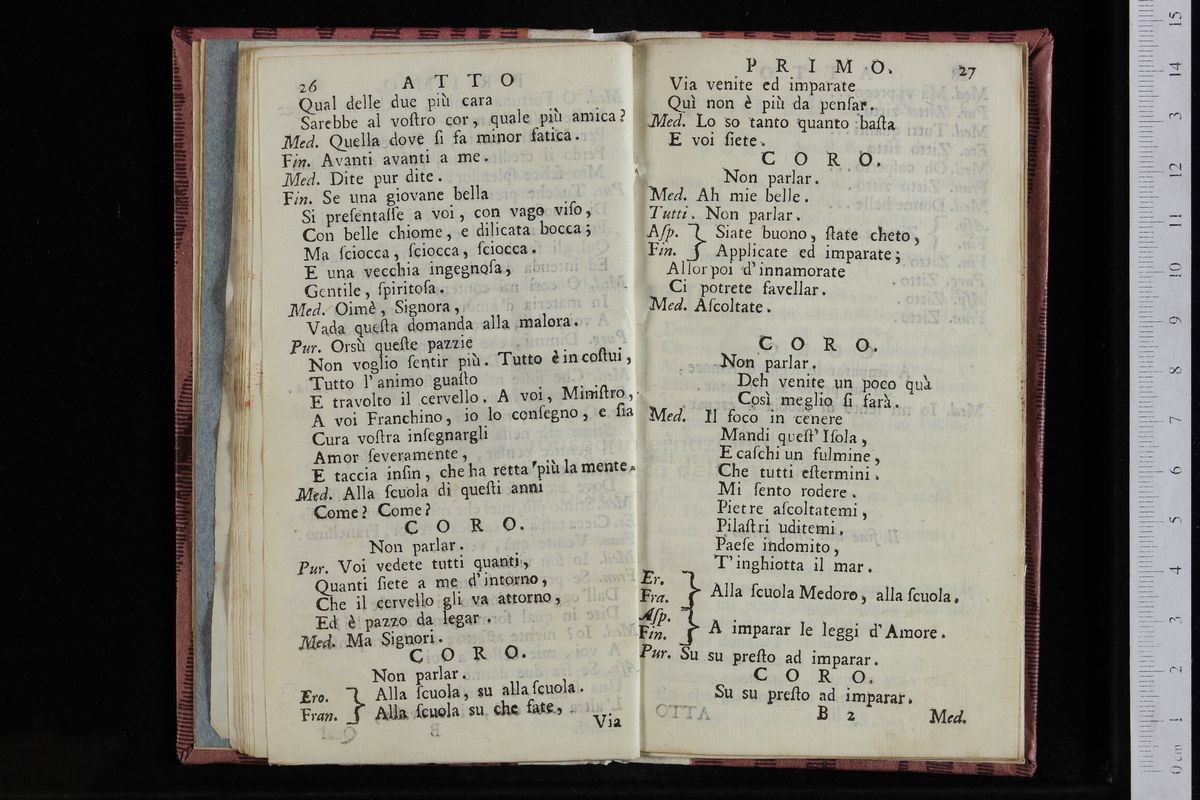 26 ATTO
Qual delle due più cara
Sarebbe al voſtro cor, quale più amica?
Med. Quella dove ſi fa minor fatica.
Fin. Avanti avanti a me.
Med. Dite pur dite.
Fin. Se una giovane bella
Si preſentaſſe a voi, con vago viſo,
Con belle chiome, e dilicata bocca;
Ma ſciocca, ſciocca, ſciocca.
E una vecchia ingegnoſa,
Gentile, ſpiritoſa.
Med. Oimè, Signora,
Vada queſta domanda alla malora.
Pur. Orsù queſte pazzie
Non voglio ſentir più. Tutto è in coſtui,
Tutto l'animo guaſto
E travolto il cervello. A voi, Miniſtro,
A voi Franchino, io lo conſegno, e ſia
Cura voſtra inſegnargli
Amor ſeveramente,
E taccia inſin, che ha retta più la mente.
Med. Alla ſcuola di queſti anni
Come? Come?
CORO.
Non parlar.
Pur. Voi vedete tutti quanti,
Quanti ſiete a me d'intorno,
Che il cervello gli va attorno,
Ed è pazzo da legar.
Med. Ma Signori.
CORO.
Non parlar.
Ero. } Alla ſcuola, su alla ſcuola.
Fran. } Alla ſcuola su che fate,
Via
PRIMO. 27
Via venite ed imparate
Quì non è più da penſar.
Med. Lo so tanto quanto baſta
E voi ſiete.
CORO.
Non parlar.
Med. Ah mie belle.
Tutti. Non parlar.
Aſp. } Siate buono, ſtate cheto,
Fin. } Applicate ed imparate;
Allor poi d'innamorate
Ci potrete favellar.
Med. Aſcoltate.
CORO.
Non parlar.
Deh venite un poco quà
Così meglio ſi farà.
Med. Il foco in cenere
Mandi queſt' Iſola,
E caſchi un fulmine,
Che tutti eſtermini.
Mi ſento rodere.
Pietre aſcoltatemi,
Pilaſtri uditemi,
Paeſe indomito,
T'inghiotta il mar.
Er.
Fra. } Alla ſcuola Medoro, alla ſcuola.
Aſp.
Fin. } A imparar le leggi d'Amore.
Pur. Su su preſto ad imparar.
CORO.
Su su preſto ad imparar.
B 2 Med.
0 cm 1 2 3 4 5 6 7 8 9 10 11 12 13 14 15